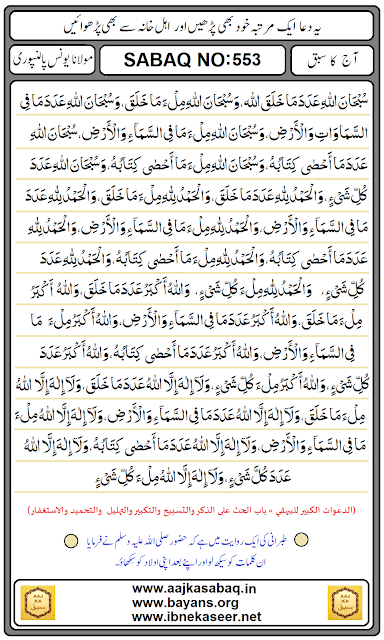 یہ دعا ایک مرتبہ خود بھی پڑھیں اور اہل خانہ سے بھی پڑھوائیں
آج کا سبق
SABAQ NO:553
مولانا یونس پالنپوری
سُبْحَانَ اللهِ عَدَدَ مَا خَلَقَ اللهُ، وَسُبْحَانَ اللهِ مِلْءَ مَا خَلَقَ، وَسُبْحَانَ اللهِ عَدَدَ مَا فِي
السَّمَاوَاتِ وَالْأَرْضِ، وَسُبْحَانَ اللهِ مِلْءَ مَا فِي السَّمَآءِ وَالْأَرْضِ، سُبْحَانَ اللهِ
عَدَدَ مَآ أَحْصٰى كِتَابُهُ، وَسُبْحَانَ اللهِ مِلْءَ مَآ أَحْصٰى كِتَابُهُ، وَسُبْحَانَ اللهِ عَدَدَ
كُلِّ شَيْءٍ، وَالْحَمْدُ لِلّٰهِ عَدَدَ مَا خَلَقَ، وَالْحَمْدُ لِلّٰهِ مِلْءَ مَا خَلَقَ، وَالْحَمْدُ لِلّٰهِ عَدَدَ
مَا فِي السَّمَآءِ وَالْأَرْضِ، وَالْحَمْدُ لِلّٰهِ مِلْءَ مَا فِي السَّمَآءِ وَالْأَرْضِ، وَالْحَمْدُ لِلّٰهِ
عَدَدَ مَآ أَحْصٰى كِتَابُهُ، وَالْحَمْدُ لِلّٰهِ مِلْءَ مَآ أَحْصٰى كِتَابُهُ، وَالْحَمْدُ لِلّٰهِ عَدَدَ
كُلِّ شَيْءٍ، وَالْحَمْدُ لِلّٰهِ مِلْءَ كُلِّ شَيْءٍ، وَاللهُ أَكْبَرُ عَدَدَ مَا خَلَقَ، وَاللهُ أَكْبَرُ
مِلْءَ مَا خَلَقَ، وَاللهُ أَكْبَرُ عَدَدَ مَا فِي السَّمَآءِ وَالْأَرْضِ، وَاللهُ أَكْبَرُ مِلْءَ مَا
فِي السَّمَآءِ وَالْأَرْضِ، وَاللهُ أَكْبَرُ عَدَدَ مَآ أَحْصٰى كِتَابُهُ، وَاللهُ أَكْبَرُ عَدَدَ
كُلِّ شَيْءٍ، وَاللهُ أَكْبَرُ مِلْءَ كُلِّ شَيْءٍ، وَلَآ إِلٰهَ إِلَّا اللهُ عَدَدَ مَا خَلَقَ، وَلَآ إِلٰهَ إِلَّا اللهُ
مِلْءَ مَا خَلَقَ، وَلَآ إِلٰهَ إِلَّا اللهُ عَدَدَ مَا فِي السَّمَآءِ وَالْأَرْضِ، وَلَآ إِلٰهَ إِلَّا اللهُ مِلْءَ
مَا فِي السَّمَآءِ وَالْأَرْضِ، وَلَآ إِلٰهَ إِلَّا اللهُ عَدَدَ مَآ أَحْصٰى كِتَابُهُ، وَلَآ إِلٰهَ إِلَّا اللهُ
عَدَدَ كُلِّ شَيْءٍ، وَلَآ إِلٰهَ إِلَّا اللهُ مِلْءَ كُلِّ شَيْءٍ
(الدعوات الكبير للبيهقي » باب الحث على الذكر والتسبيح والتكبير والتهليل والتحميد والاستغفار)
طبرانی کی ایک روایت میں ہے کہ حضور صلی اللہ علیہ وسلم نے فرمایا
ان کلمات کو سیکھ لو اور اپنے بعد اپنی اولاد کو سکھاؤ۔
AAJ KA سبق
www.aajkasabaq.in
www.bayans.org
www.ibnekaseer.net
AAJ KA سبق